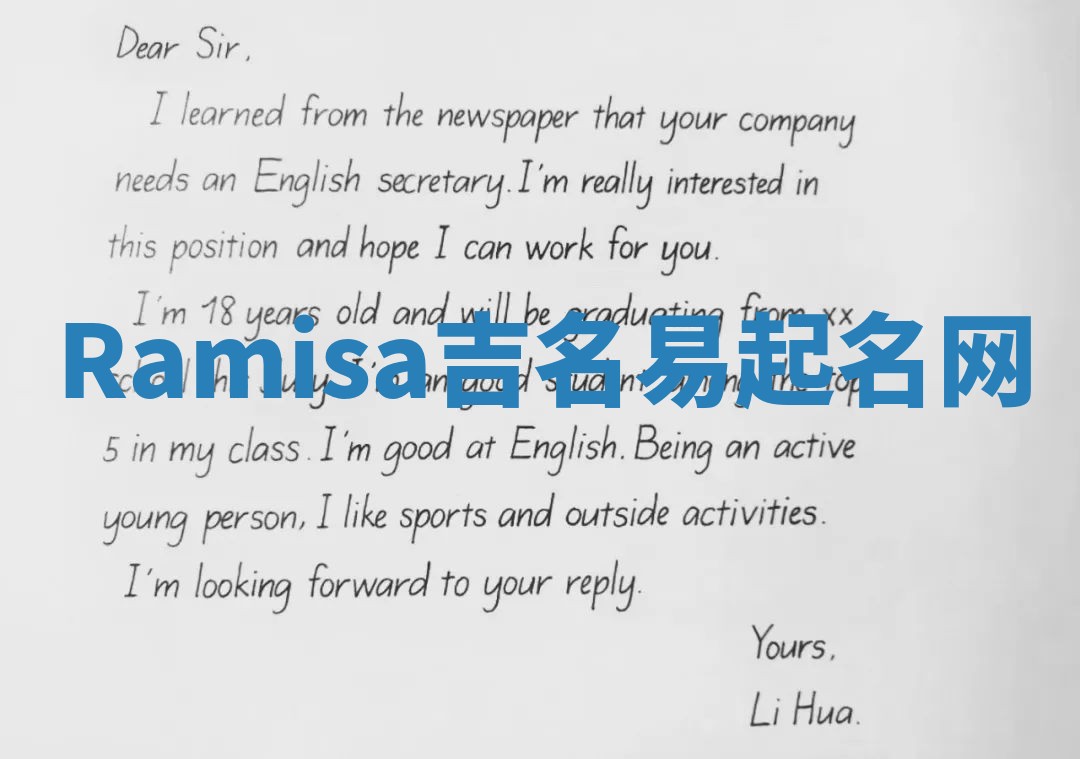 Dear Sir,
I learned from the newspaper that your company
needs an English secretary. I'm really interested in
this position and hope I can work for you.
I'm 18 years old and will be graduating from xx
Ramisa吉名易起名网
July I'm an good student among the top
5 in my class. I'm good at English. Being an active
young person, I like sports and outside activities.
I'm looking forward to your reply.
Yours,
Li Hua.